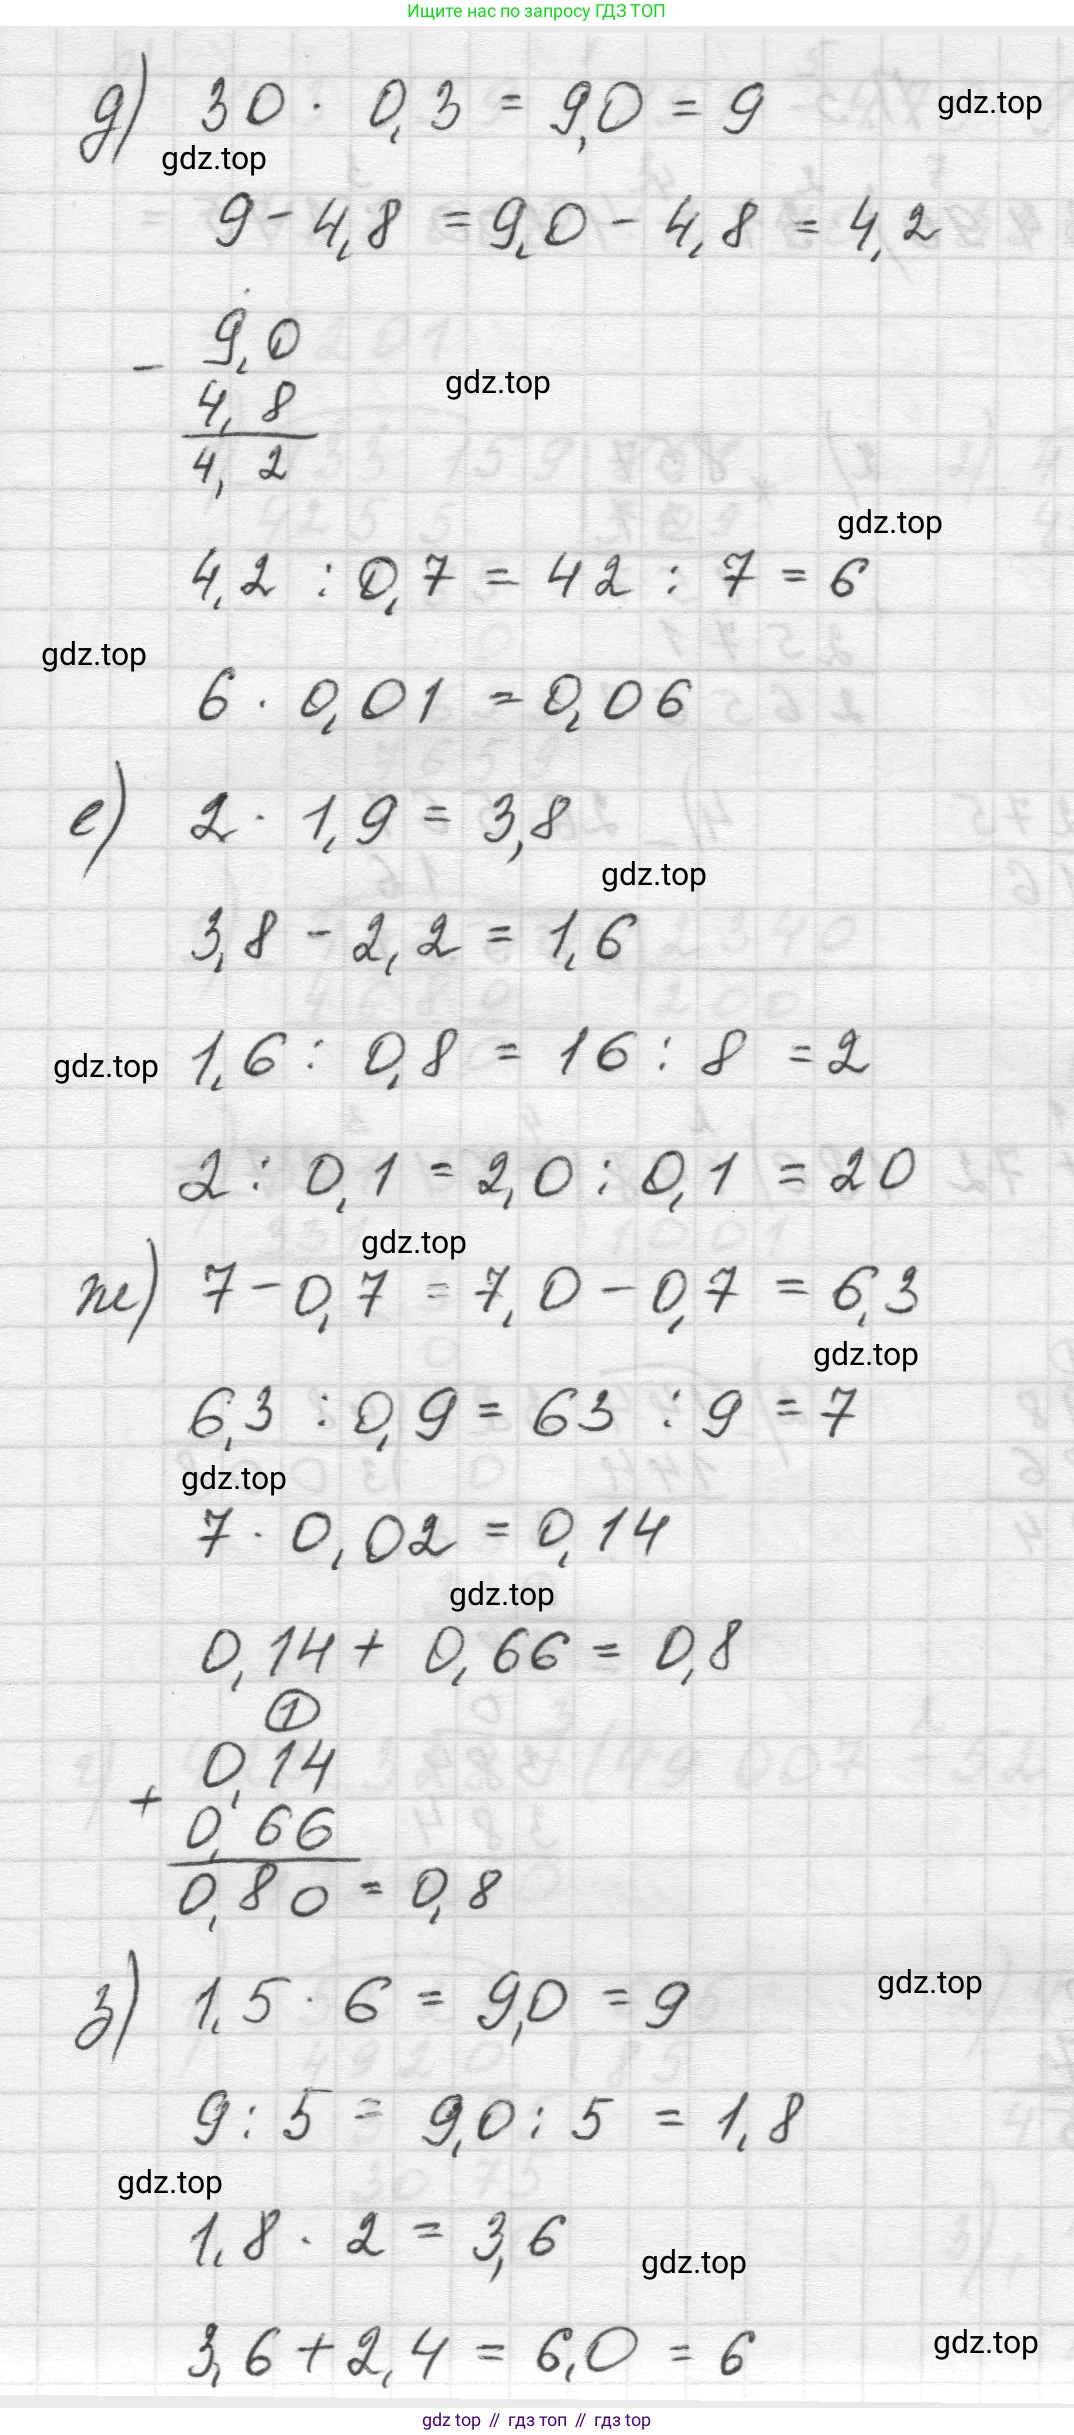 Ищите нас по запросу ГДЗ ТОП
д) 30 · 0,3 = 9,0 = 9
gdz.top
gdz.top
9 - 4,8 = 9,0 - 4,8 = 4,2
9,0
-
gdz.top
4,8
4,2
gdz.top
4,2 : 0,7 = 42 : 7 = 6
gdz.top
6 · 0,01 = 0,06
е) 2 · 1,9 = 3,8
gdz.top
3,8 - 2,2 = 1,6
gdz.top
1,6 : 0,8 = 16 : 8 = 2
2 : 0,1 = 2,0 : 0,1 = 20
gdz.top
ж) 7 - 0,7 = 7,0 - 0,7 = 6,3
gdz.top
6,3 : 0,9 = 63 : 9 = 7
gdz.top
7 · 0,02 = 0,14
gdz.top
0,14 + 0,66 = 0,8
1
0,14
+
0,66
0,80 = 0,8
gdz.top
з) 1,5 · 6 = 9,0 = 9
9 : 5 = 9,0 : 5 = 1,8
gdz.top
1,8 · 2 = 3,6
gdz.top
3,6 + 2,4 = 6,0 = 6
gdz.top
gdz top // гдз топ // gdz top